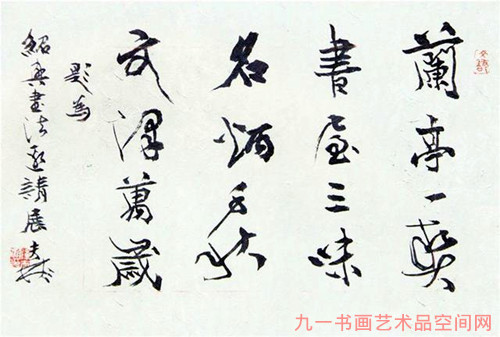 蘭亭一契
書屋三味
名炳千秋
文澤萬歲
題為
紹興書法邀請展
九一书画艺术品空间网